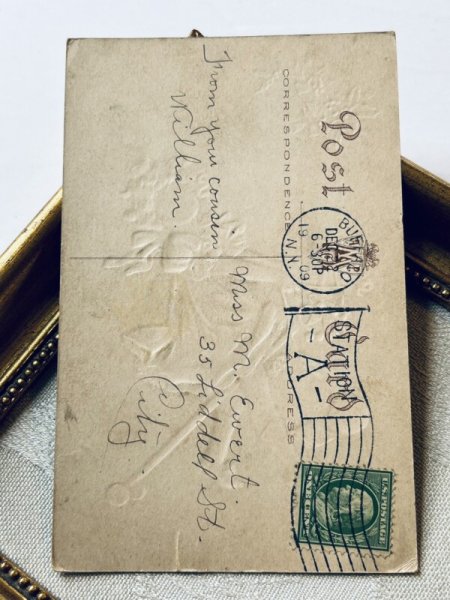 Post
CORRESPONDENCE
ADDRESS
BUFFALO
DEC
6-30P
19 09
N.Y.
STATION
- A -
U.S. POSTAGE
ONE CENT
From your cousin
William.
Miss M. Ewert.
35 Liddell St.
City.